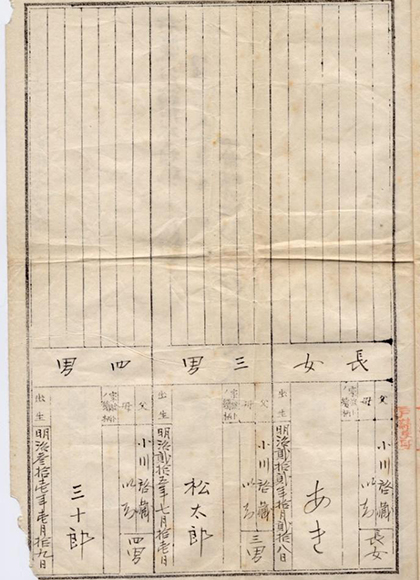 長女
父
小川啓蔵
母
長女
あき
出生
明治貳拾貳年拾月貳拾八日
三男
父
小川啓蔵
母
三男
松太郎
出生
明治貳拾五年七月拾壱日
四男
父
小川啓蔵
母
四男
三十郎
出生
明治参拾壱年壱月拾九日